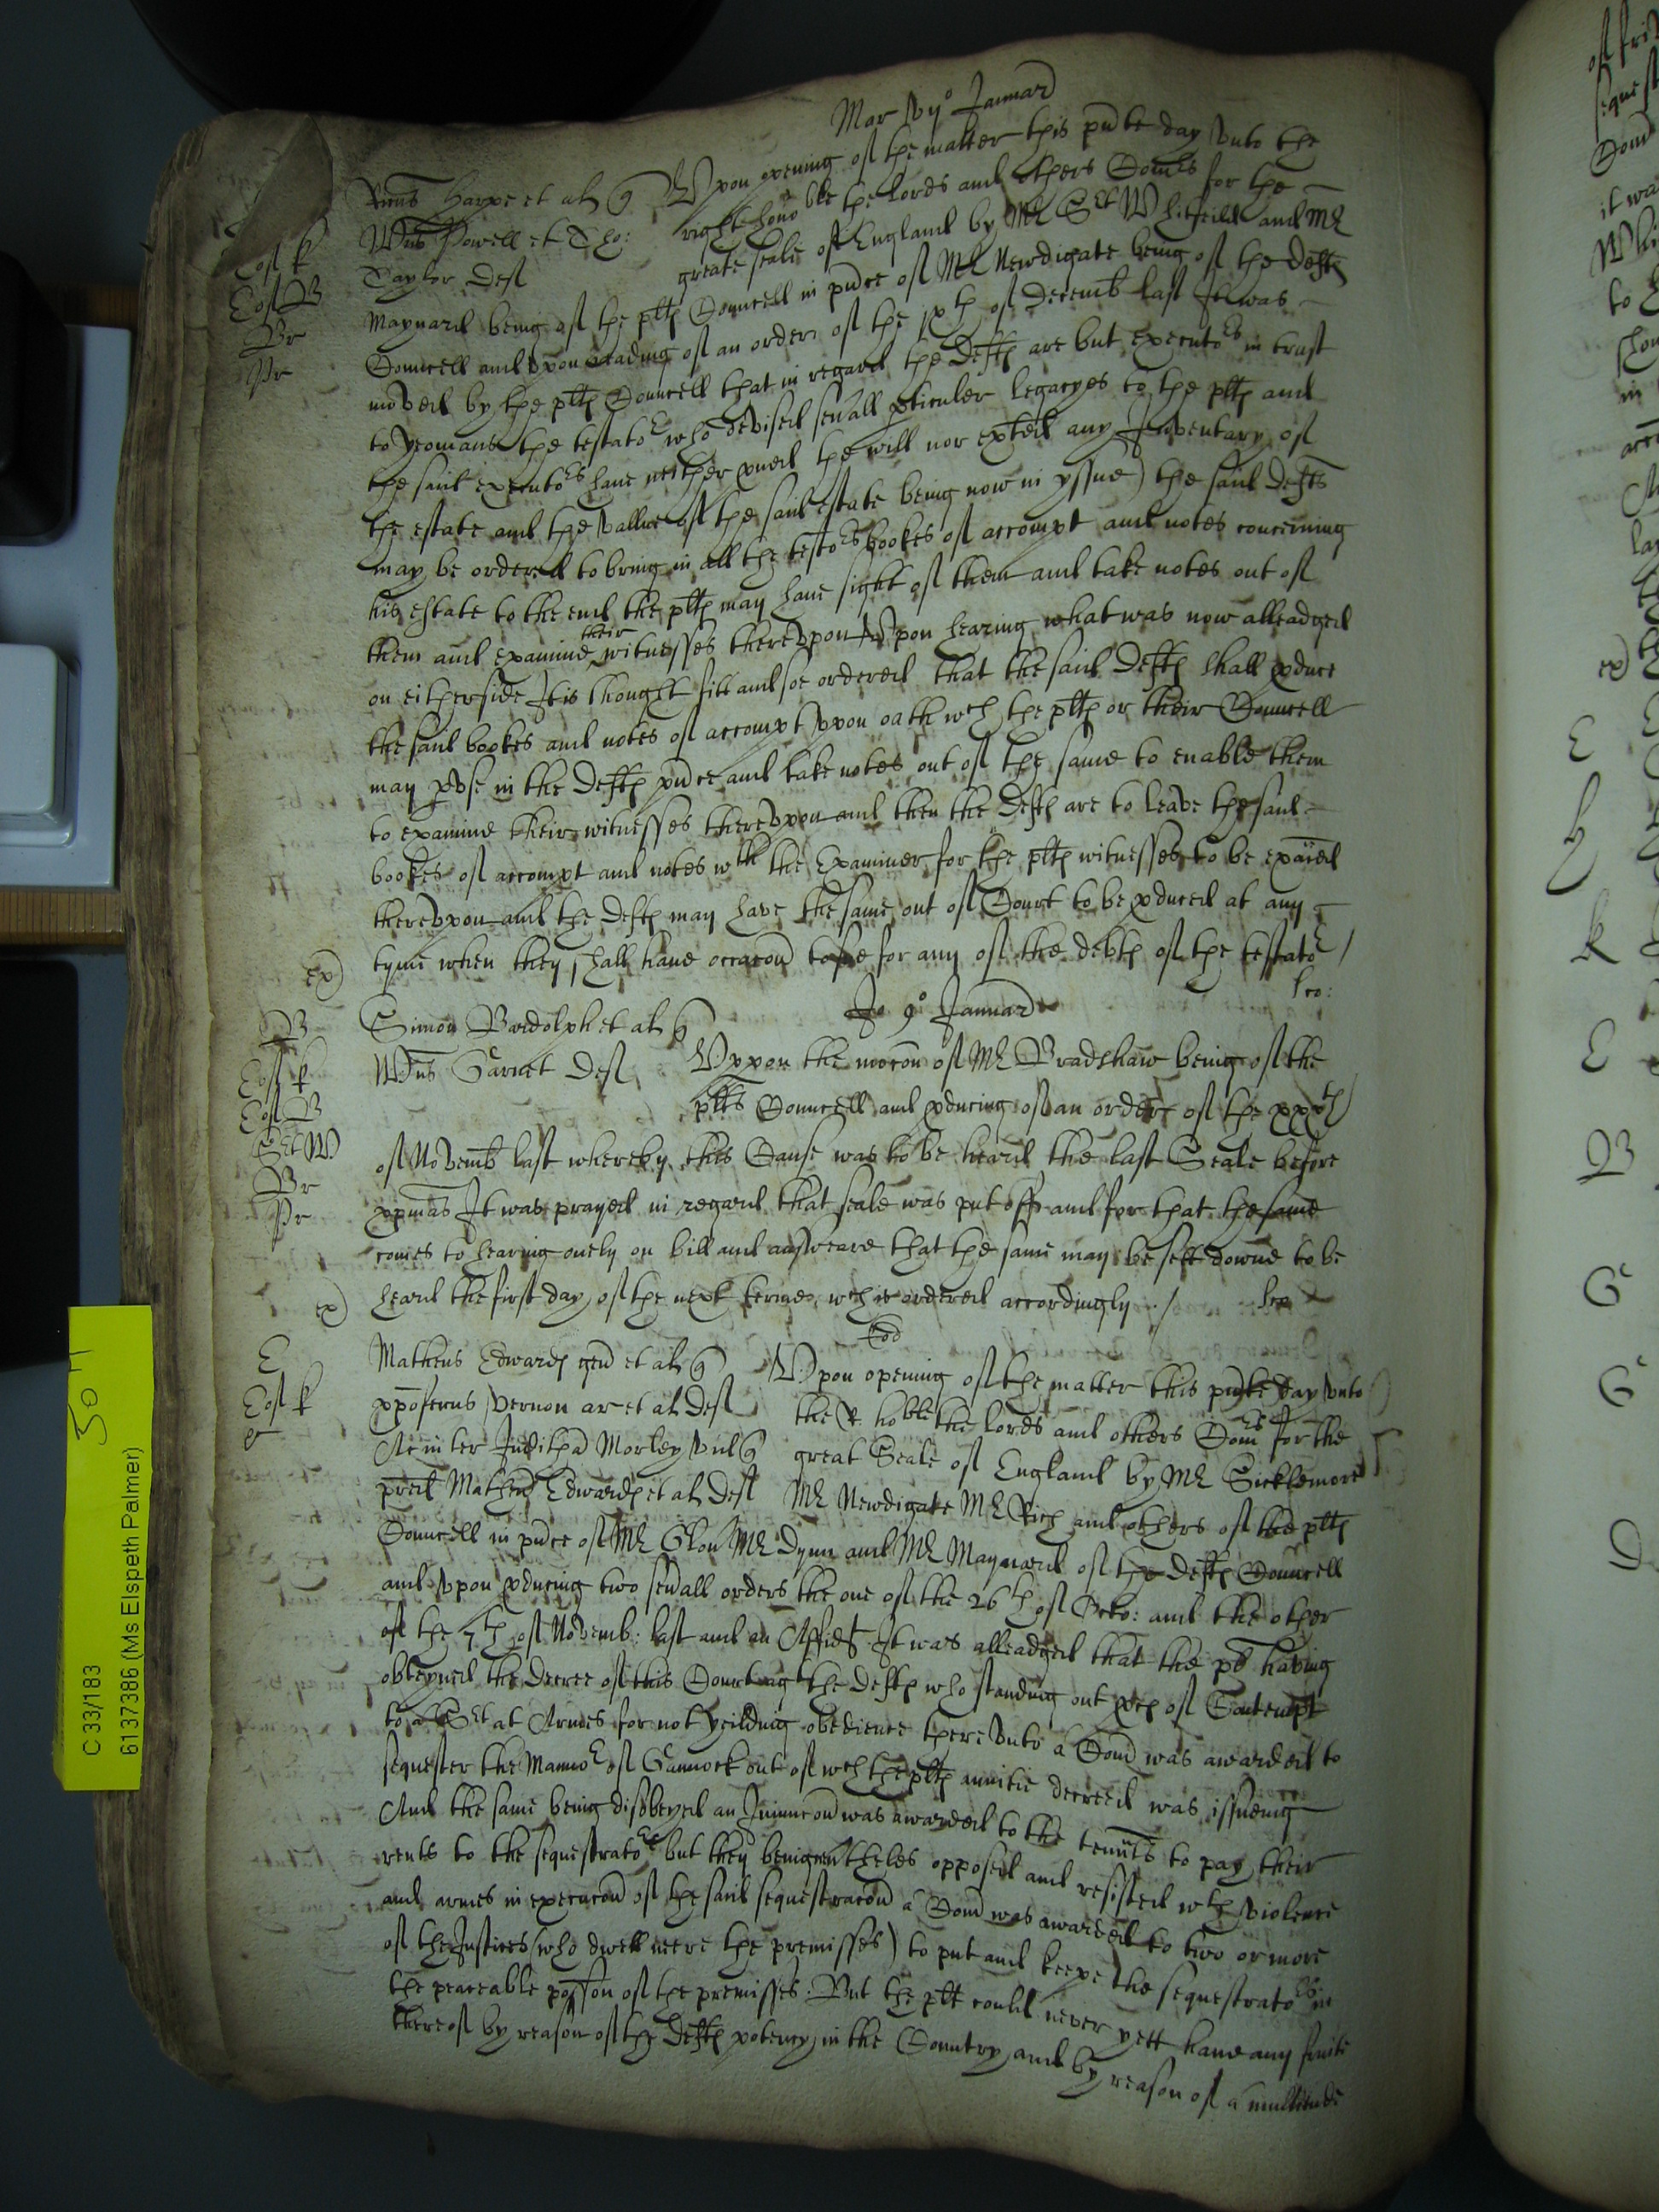 Mar vijo Januar
Ricus Harpe et al q Vpon opening of the matter this pnte day vnto the
Wus Powell et Tho: right hono ble the Lords and others Coms for the
Taylor Def greate seale of England by Mr Srt Whitfeild and Mr
Maynard being of the plts Councell in pnce of Mr Newdigate being of the Defts
Councell and vpon reading of an order of the ixth of Decemb last It was
moved by the plts Councell that in regard the Defts are but executors in trust
to yeomans the testator who devised seuall pticuler legacyes to the plts and
the said executors haue neither proved the will nor exted any Inventary of
the estate and the vallue of the said estate being now in yssue) the said Defts
may be ordered to bring in all the testors bookes of accompt and notes concerning
his estate to the end the plts may haue sight of them and take notes out of
them and examine their witnesses therevpon Vpon hearing what was now alleadged
on either side It is thought fitt and soe ordered that the said Defts shall pduce
the said bookes and notes of accompt vpon oath wch the plts or their Councell
may pvse in the Defts pnce and take notes out of the same to enable them
to examine their witnesses therevpon and then the Defts are to leave the said
bookes of accompt and notes wth the Examiner for the plts witnesses to be exaied
therevpon and the Defts may have the same out of Court to be pduced at any
tyme when they shall haue occacon to vse for any of the debts of the testator /
ex)
Jo 9o Januar
Simon Bardolph et al q
Wus Garnet Def Vppon the mocon of Mr Bradshaw being of the
plts Councell and pducing of an order of the xxxth
of Novemb last whereby this Cause was to be heard the last Seale before
xpmas It was prayed in regard that seale was put off and for that the same
comes to hearing onely on bill and answeare that the same may be sett downe to be
heard the first day of the next terme wch is ordered accordingly /
ex)
Eod
Matheus Edwards gen et al q Vpon opening of the matter this pnte day vnto
xpoferus Vernon ar et al Def the R hoble the lords and others Coms for the
Ac inter Juditha Morley vid q great Seale of England by Mr Sicklemore
pred Matheu Edwards et al Def Mr Newdigate Mr Rich and others of the plts
Councell in pnce of Mr Glou Mr Dynn and Mr Maynard of the Defts Councell
and vpon pducing two seuall orders the one of the 26th of Octo: and the other
of the 7th of Novemb: last and an Affid It was alleadged that the pl having
obteyned the decree of this Court agt the Defts who standing out pces of Contempt
to a Srt at Armes for not yeilding obedience therevnto a Com was awarded to
sequester the Mannor of Gannock out of wch the plts annitie decreed was issueing
And the same being disobeyed an Iniunccon was awarded to the tennts to pay their
rents to the sequestrators but they being opposed and resisted wth violence
and armes in execucon of the said sequestracon a Com was awarded to two or more
of the Justices (who dwell nere the premisses) to put and keepe the sequestrators in
the peaceable possion of the premisses. But the plt could never yett haue any fruite
thereof by reason of the Defts potency in the Country and by reason of a multitude
C 33/183
6137386 (Ms Elspeth Palmer)